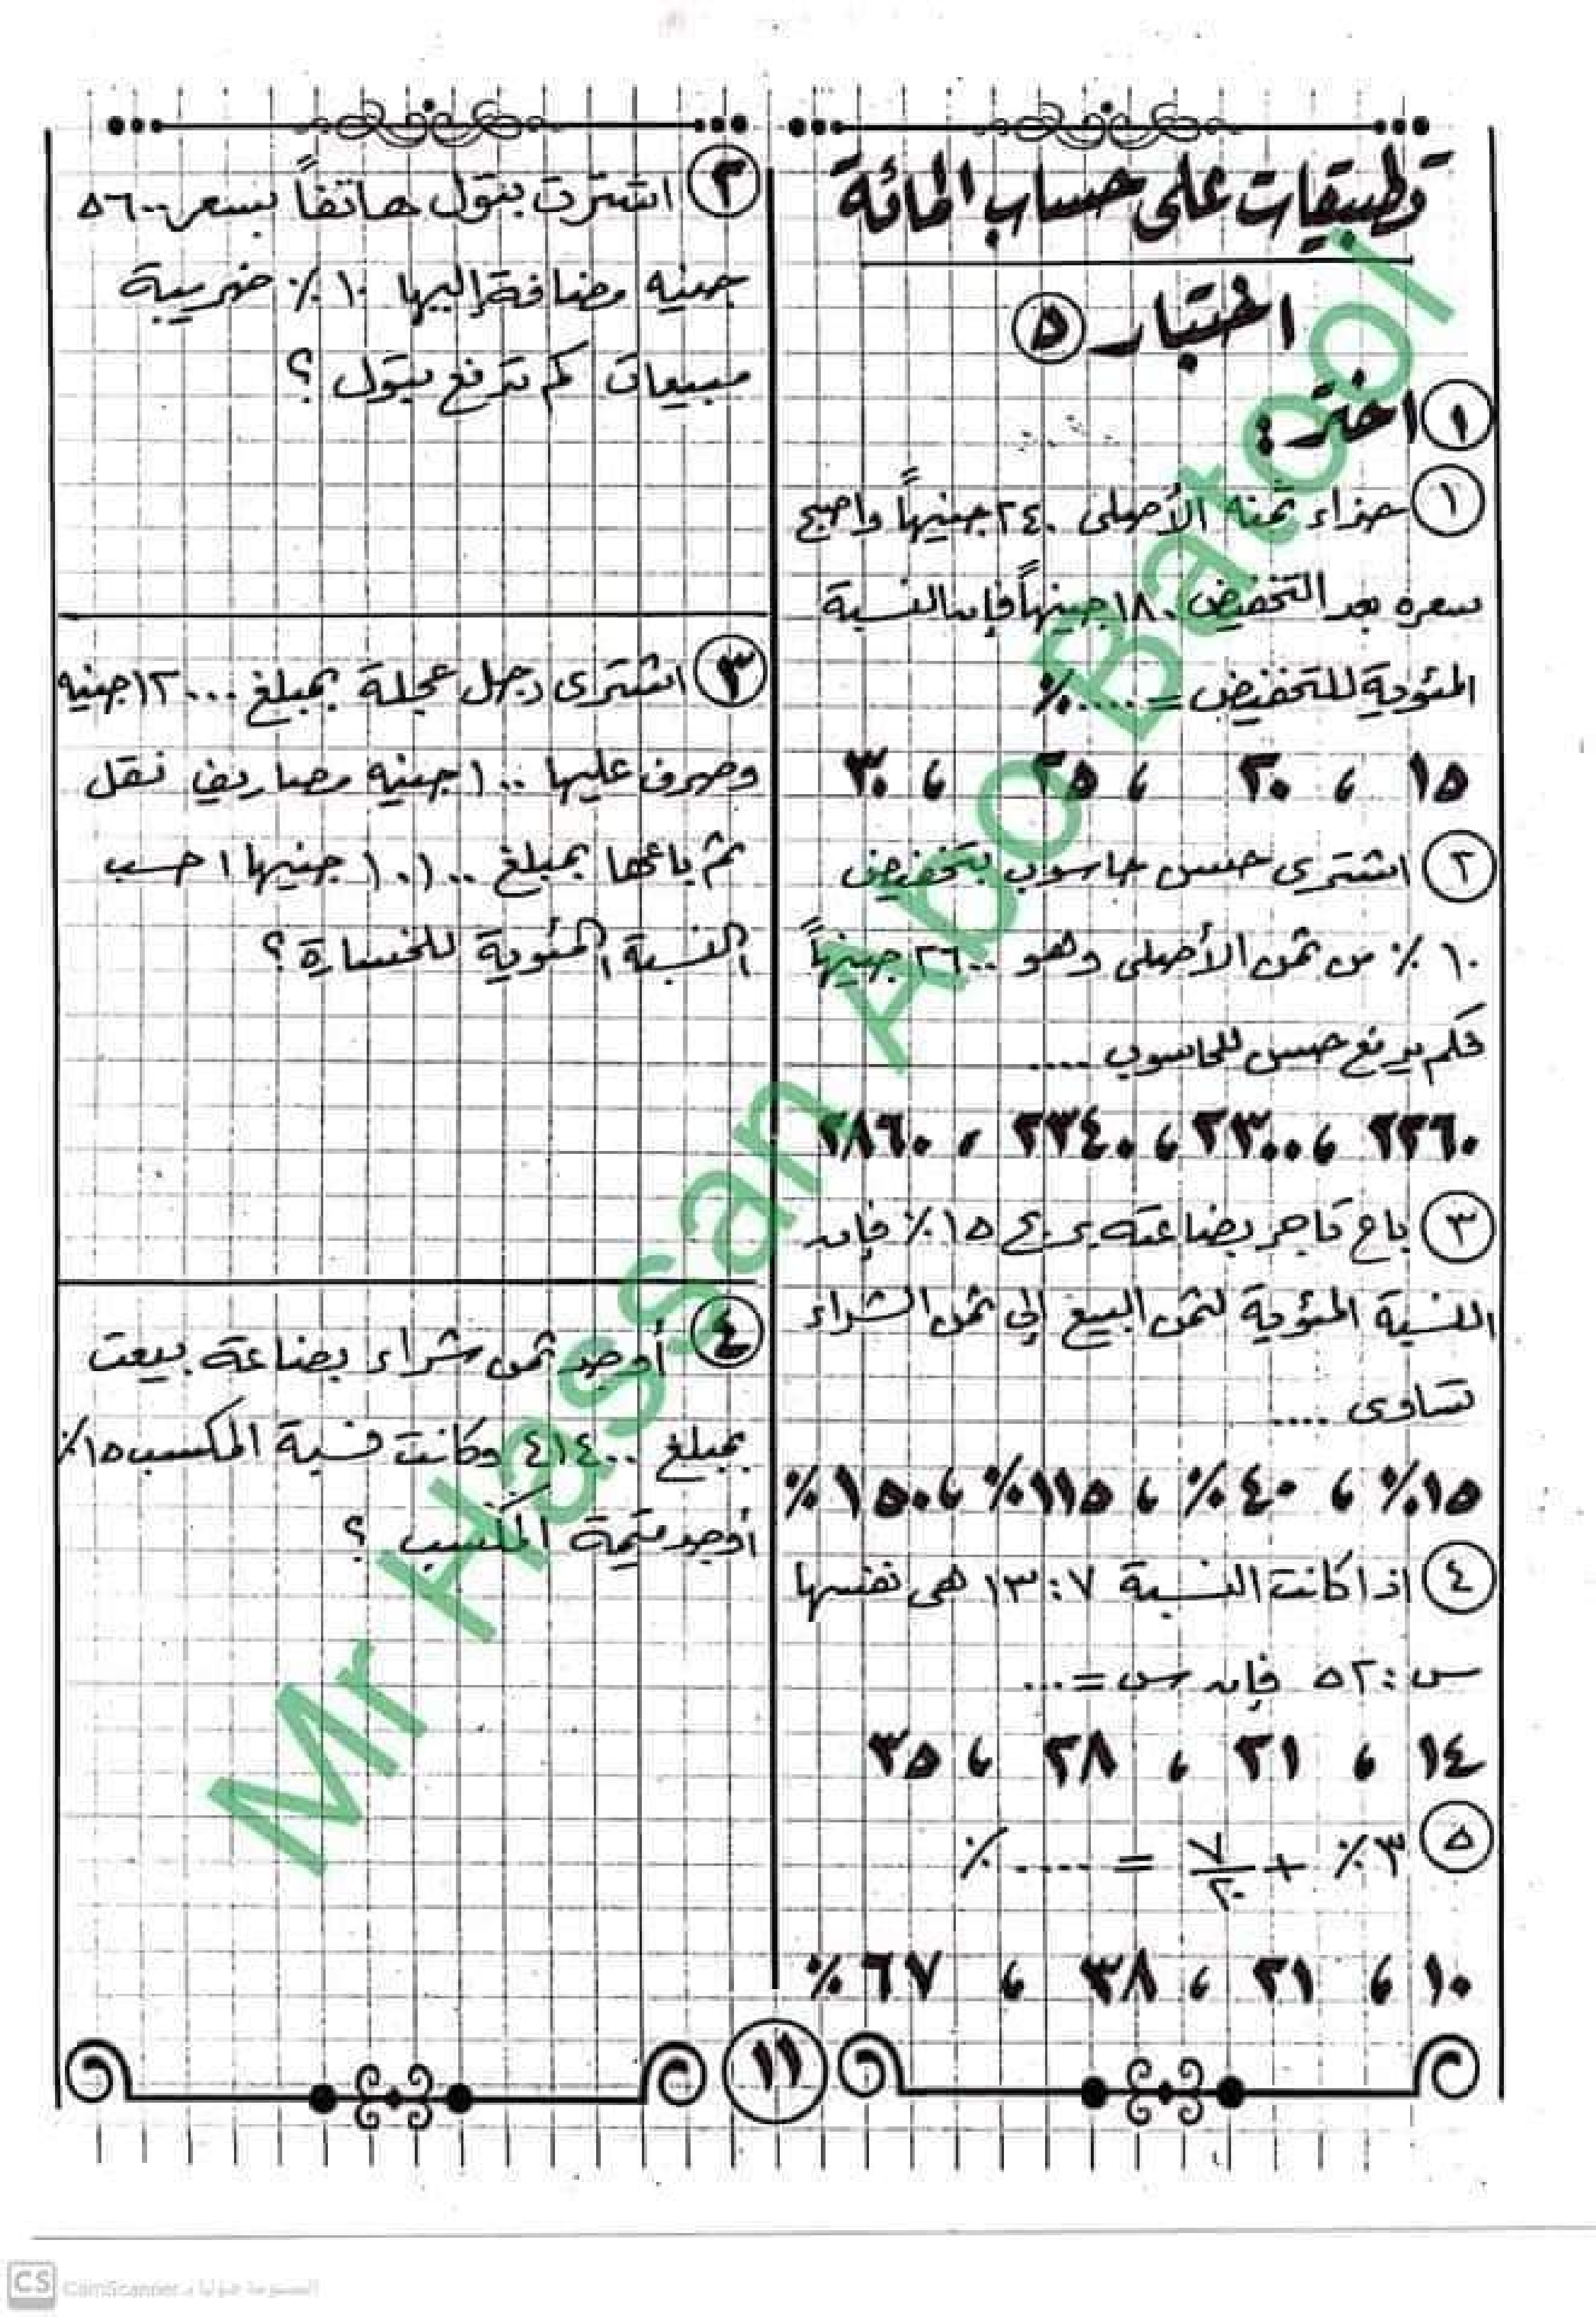 تطبيقات على حساب المائة
اختبار ٥
١ اختر :
١ حذاء ثمنه الأصلى ٢٤٠ جنيهاً واصبح
سعره بعد التخفيض ١٨٠ جينهاً فإن النسبة
المئوية للتخفيض = .... %
١٥ ، ٢٠ ، ٢٥ ، ٣٠
٢ اشترى حسن حاسوب بتخفيض
١٠ % من ثمن الأصلى وهو ٢٦٠٠ جينهاً
فكم يدفع حسن للحاسوب ....
٢٢٦٠ ، ٢٣٠٠ ، ٢٣٤٠ ، ٢٨٦٠
٣ باع تاجر بضاعته بربح ١٥ % فإن
النسبة المئوية لثمن البيع إلي ثمن الشراء
تساوى ....
١٥% ، ٤٠% ، ١١٥% ، ١٥٠%
٤ اذا كانت النسبة ٧ : ١٣ هى نفسها
س : ٥٢ فإن س = ...
١٤ ، ٢١ ، ٢٨ ، ٣٥
٥ ٣% + ٧/٢٠ = .... %
١٠ ، ٢١ ، ٣٨ ، ٦٧ %
٢ اشترت بتول هاتفاً بسعر ٥٦٠٠
جنيه مضافة إليها ١٠ % ضريبة
مبيعات كم تدفع بتول ؟
٣ اشترى رجل عجلة بمبلغ ١٢٠٠٠ جنيه
وصرف عليها ١٠٠ جنيه مصاريف نقل
ثم باعها بمبلغ ١٠١٠٠ جنيها احسب
النسبة المئوية للخسارة ؟
٤ أوجد ثمن شراء بضاعة بيعت
بمبلغ ٤١٤٠٠ وكانت نسبة المكسب ١٥%
أوجد قيمة المكسب ؟
١١
Mr Hassan Abo Batool
CS CamScanner